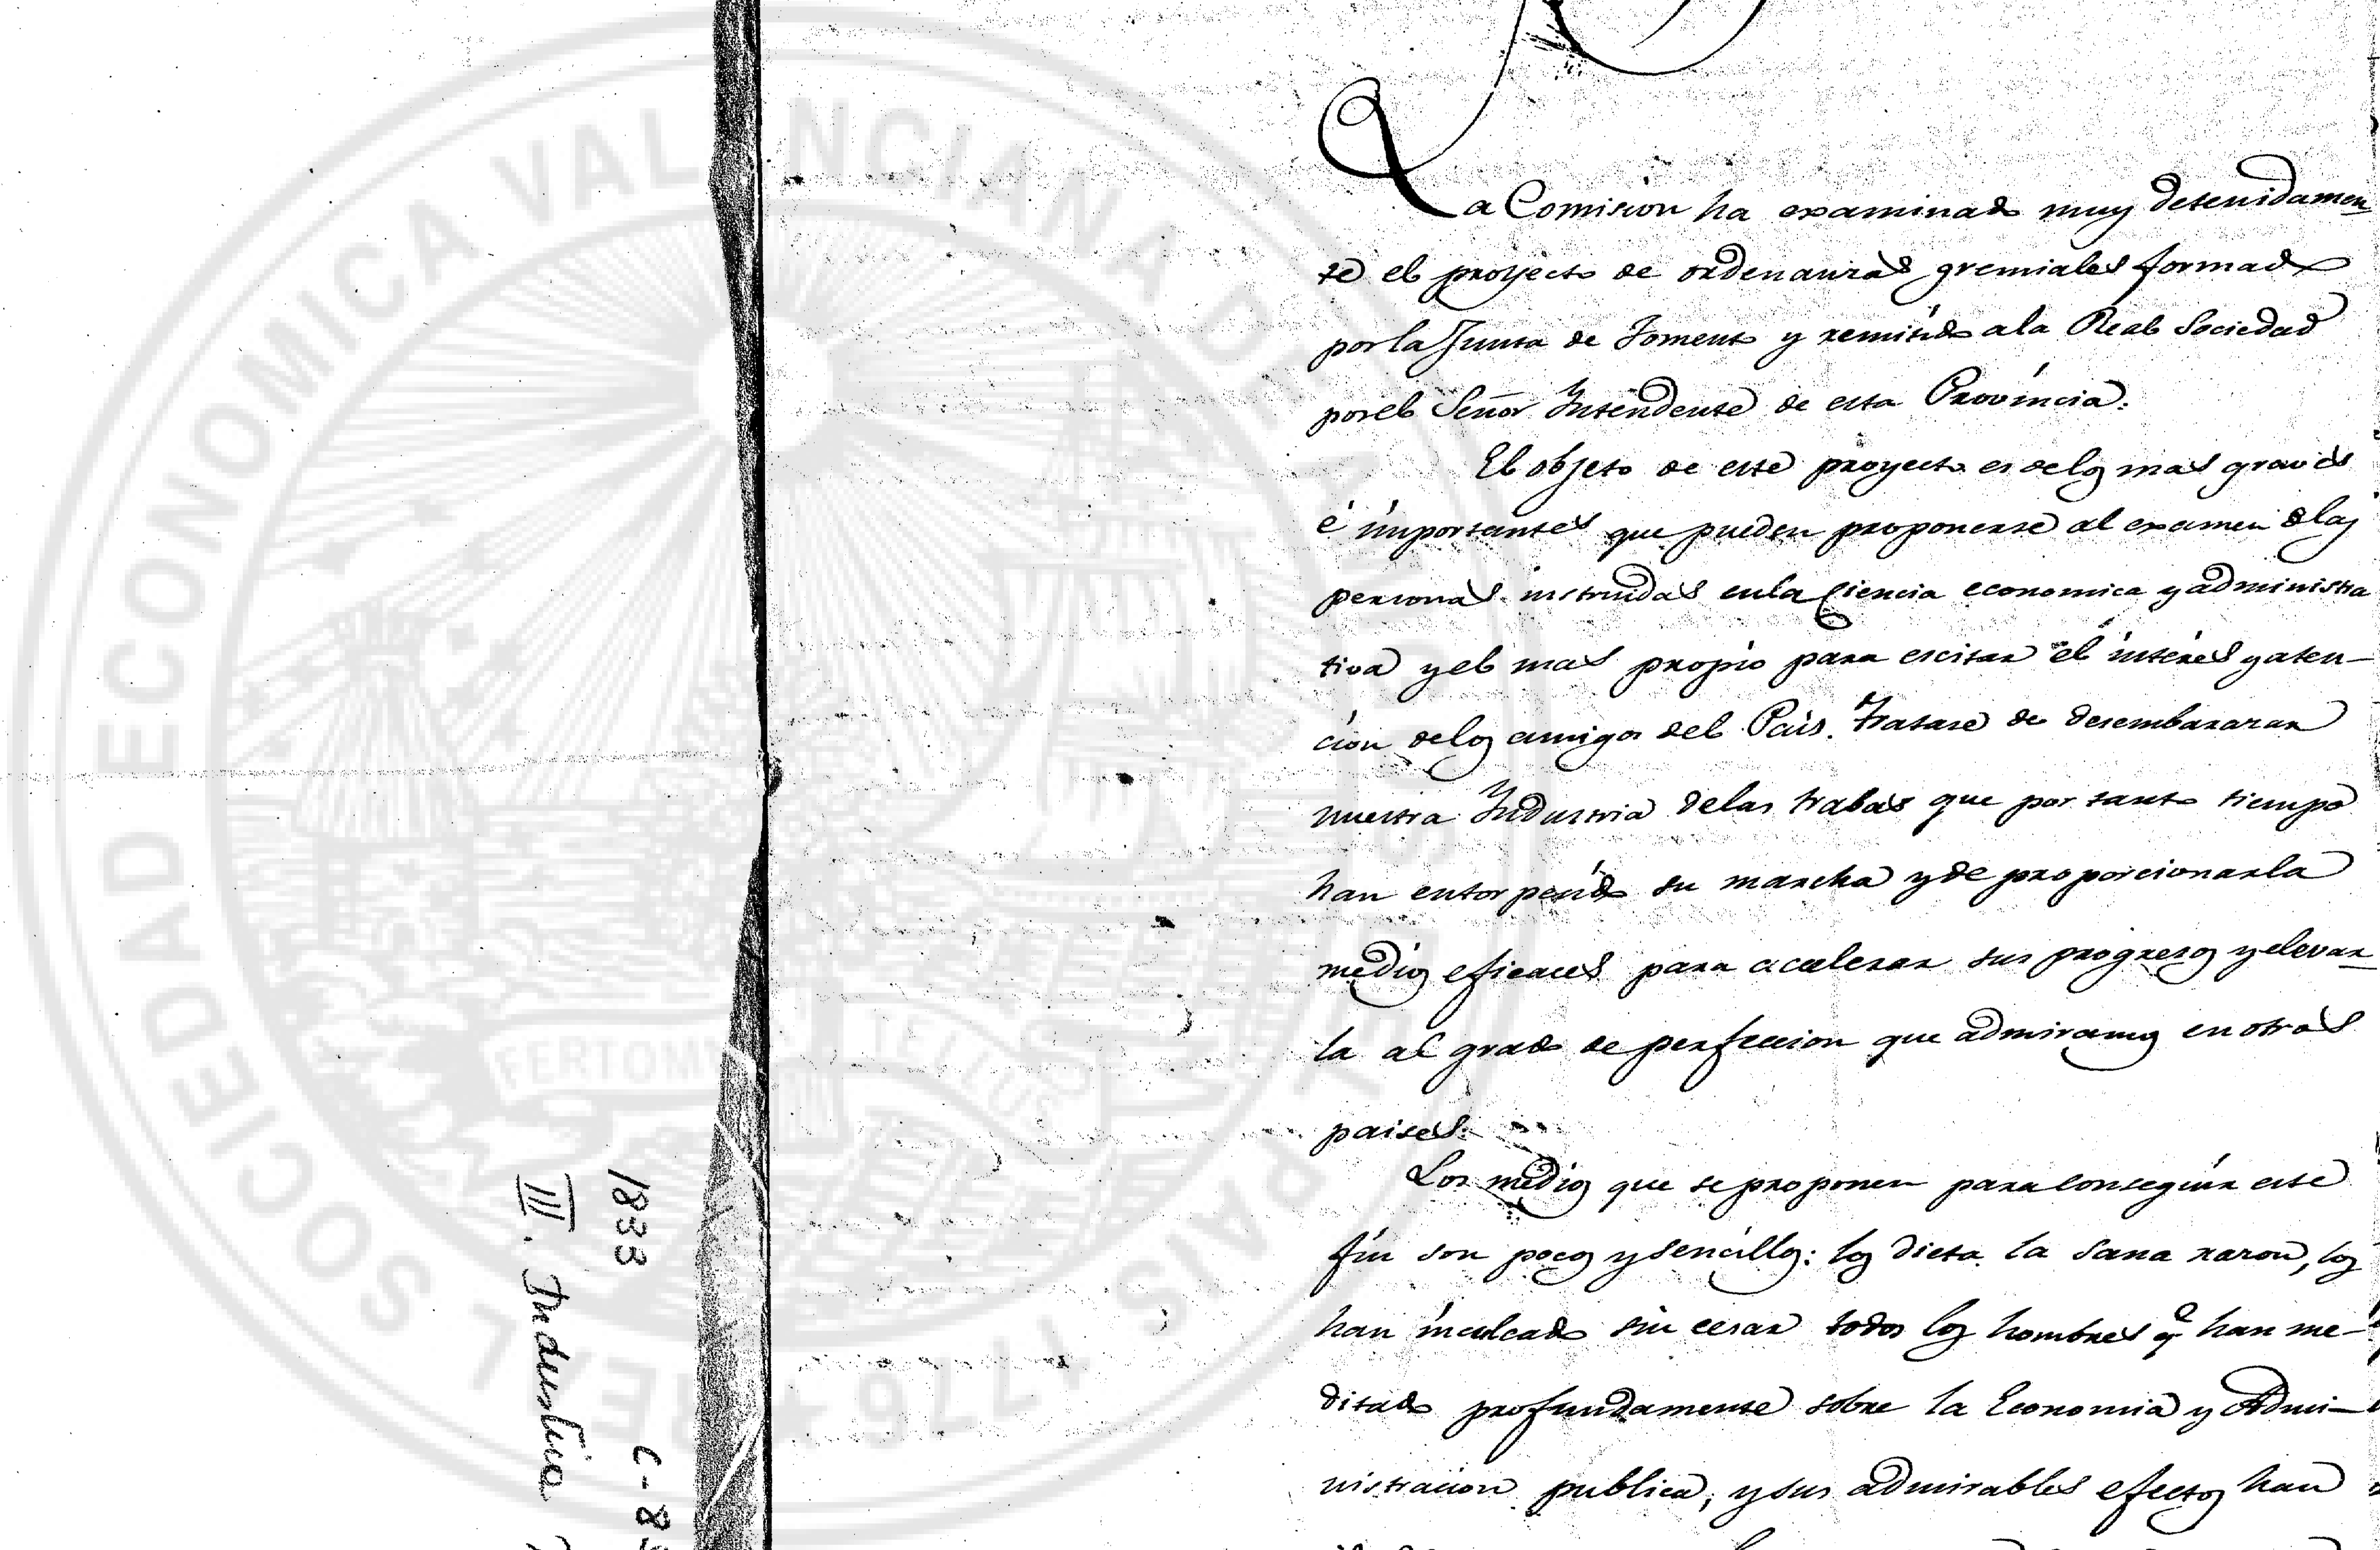 La Comision ha examinado muy detenidamen
te el proyecto de ordenanzas gremiales formado
por la Junta de Fomento y remitido ala Real Sociedad
por el Señor Yntendente de esta Provincia.
El objeto de este proyecto es delos mas graves
é importantes que pueden proponerse al examen delas
personas instruidas enla Ciencia economica y administra
tiva y el mas propio para escitar el interés y aten-
cion delos amigos del Pais. Tratase de desembarazar
nuestra Yndustria delas trabas que por tanto tiempo
han entorpecido su marcha y de proporcionarla
medios eficaces para acelerar sus progresos y elevar
la al grado de perfeccion que admiramos en otros
paises.
Los medios que se proponen para conseguir este
fin son pocos y sencillos: los dicta la sana razon, los
han inculcado sin cesar todos los hombres q han me-
ditado profundamente sobre la Economia y Admi-
nistracion publica, y sus admirables efectos han
1833
III. Industria
C-8
REAL SOCIEDAD ECONOMICA VALENCIANA